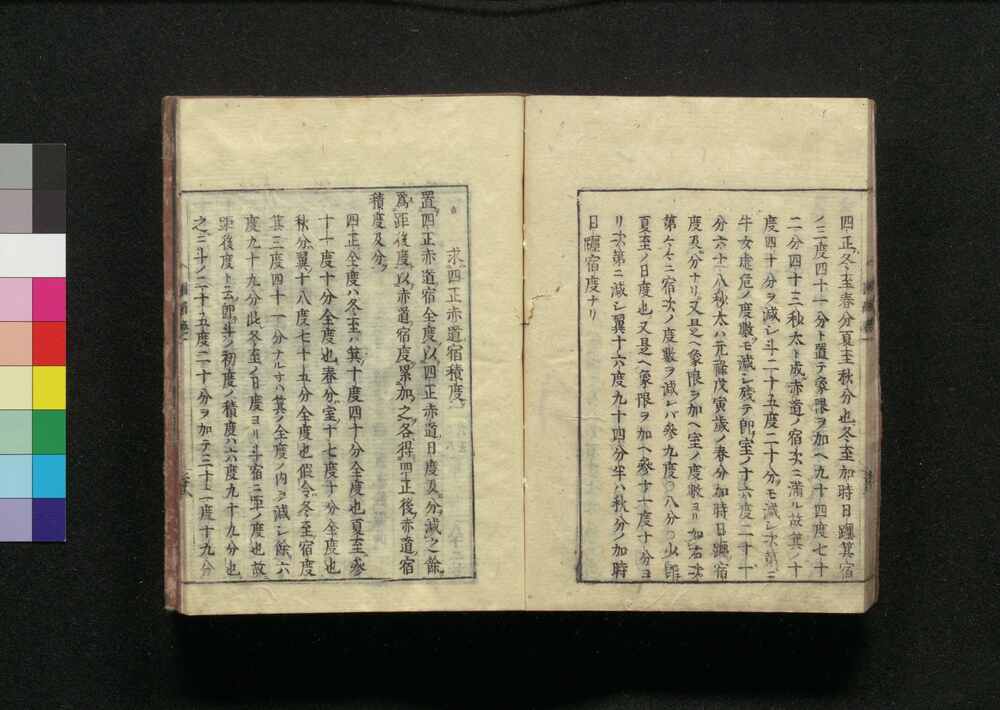 四正ハ冬至春分夏至秋分也冬至加時日躔箕宿
ノ三度四十一分ト置テ象限ヲ加ヘ九十四度七十
二分四十三秋太ト成赤道ノ宿次ニ満ル故箕ノ十
度四十分ヲ減シ斗二十五度二十分モ減シ次第ニ
牛女虚危ノ度數モ減シ残テ即室ノ十六度二十一
分六十八秋太ハ元禄戊寅歳ノ春分加時日躔宿
度及分ナリ又是ヘ象限ヲ加ヘ室ノ度數ヨリ如右次
第々々ニ宿次ノ度數ヲ減レバ参九度〇八分〇少即
夏至ノ日度也又是ヘ象限ヲ加ヘ参十一度十分ヨ
リ次第ニ減シ翼十六度九十四分半ハ秋分ノ加時
日躔宿度ナリ
求四正赤道宿積度
置四正赤道宿全度以四正赤道日度及分減之餘
爲距後度以赤道宿度累加之各得四正後赤道宿
積度及分
四正全度ハ冬至ハ箕十度四十分全度也夏至参
十一度十分全度也春分室十七度十分全度也
秋分翼十八度七十五分全度也假令冬至宿度
箕三度四十一分ナル寸ハ箕ノ全度ノ内ヲ減シ餘六
度九十九分此冬至ノ日度ヨリ斗宿ニ距ノ度也故
距後度ト云即斗ノ初度ノ積度ハ六度九十九分也
之ニ斗ノ二十五度二十分ヲ加テ三十二度十九分